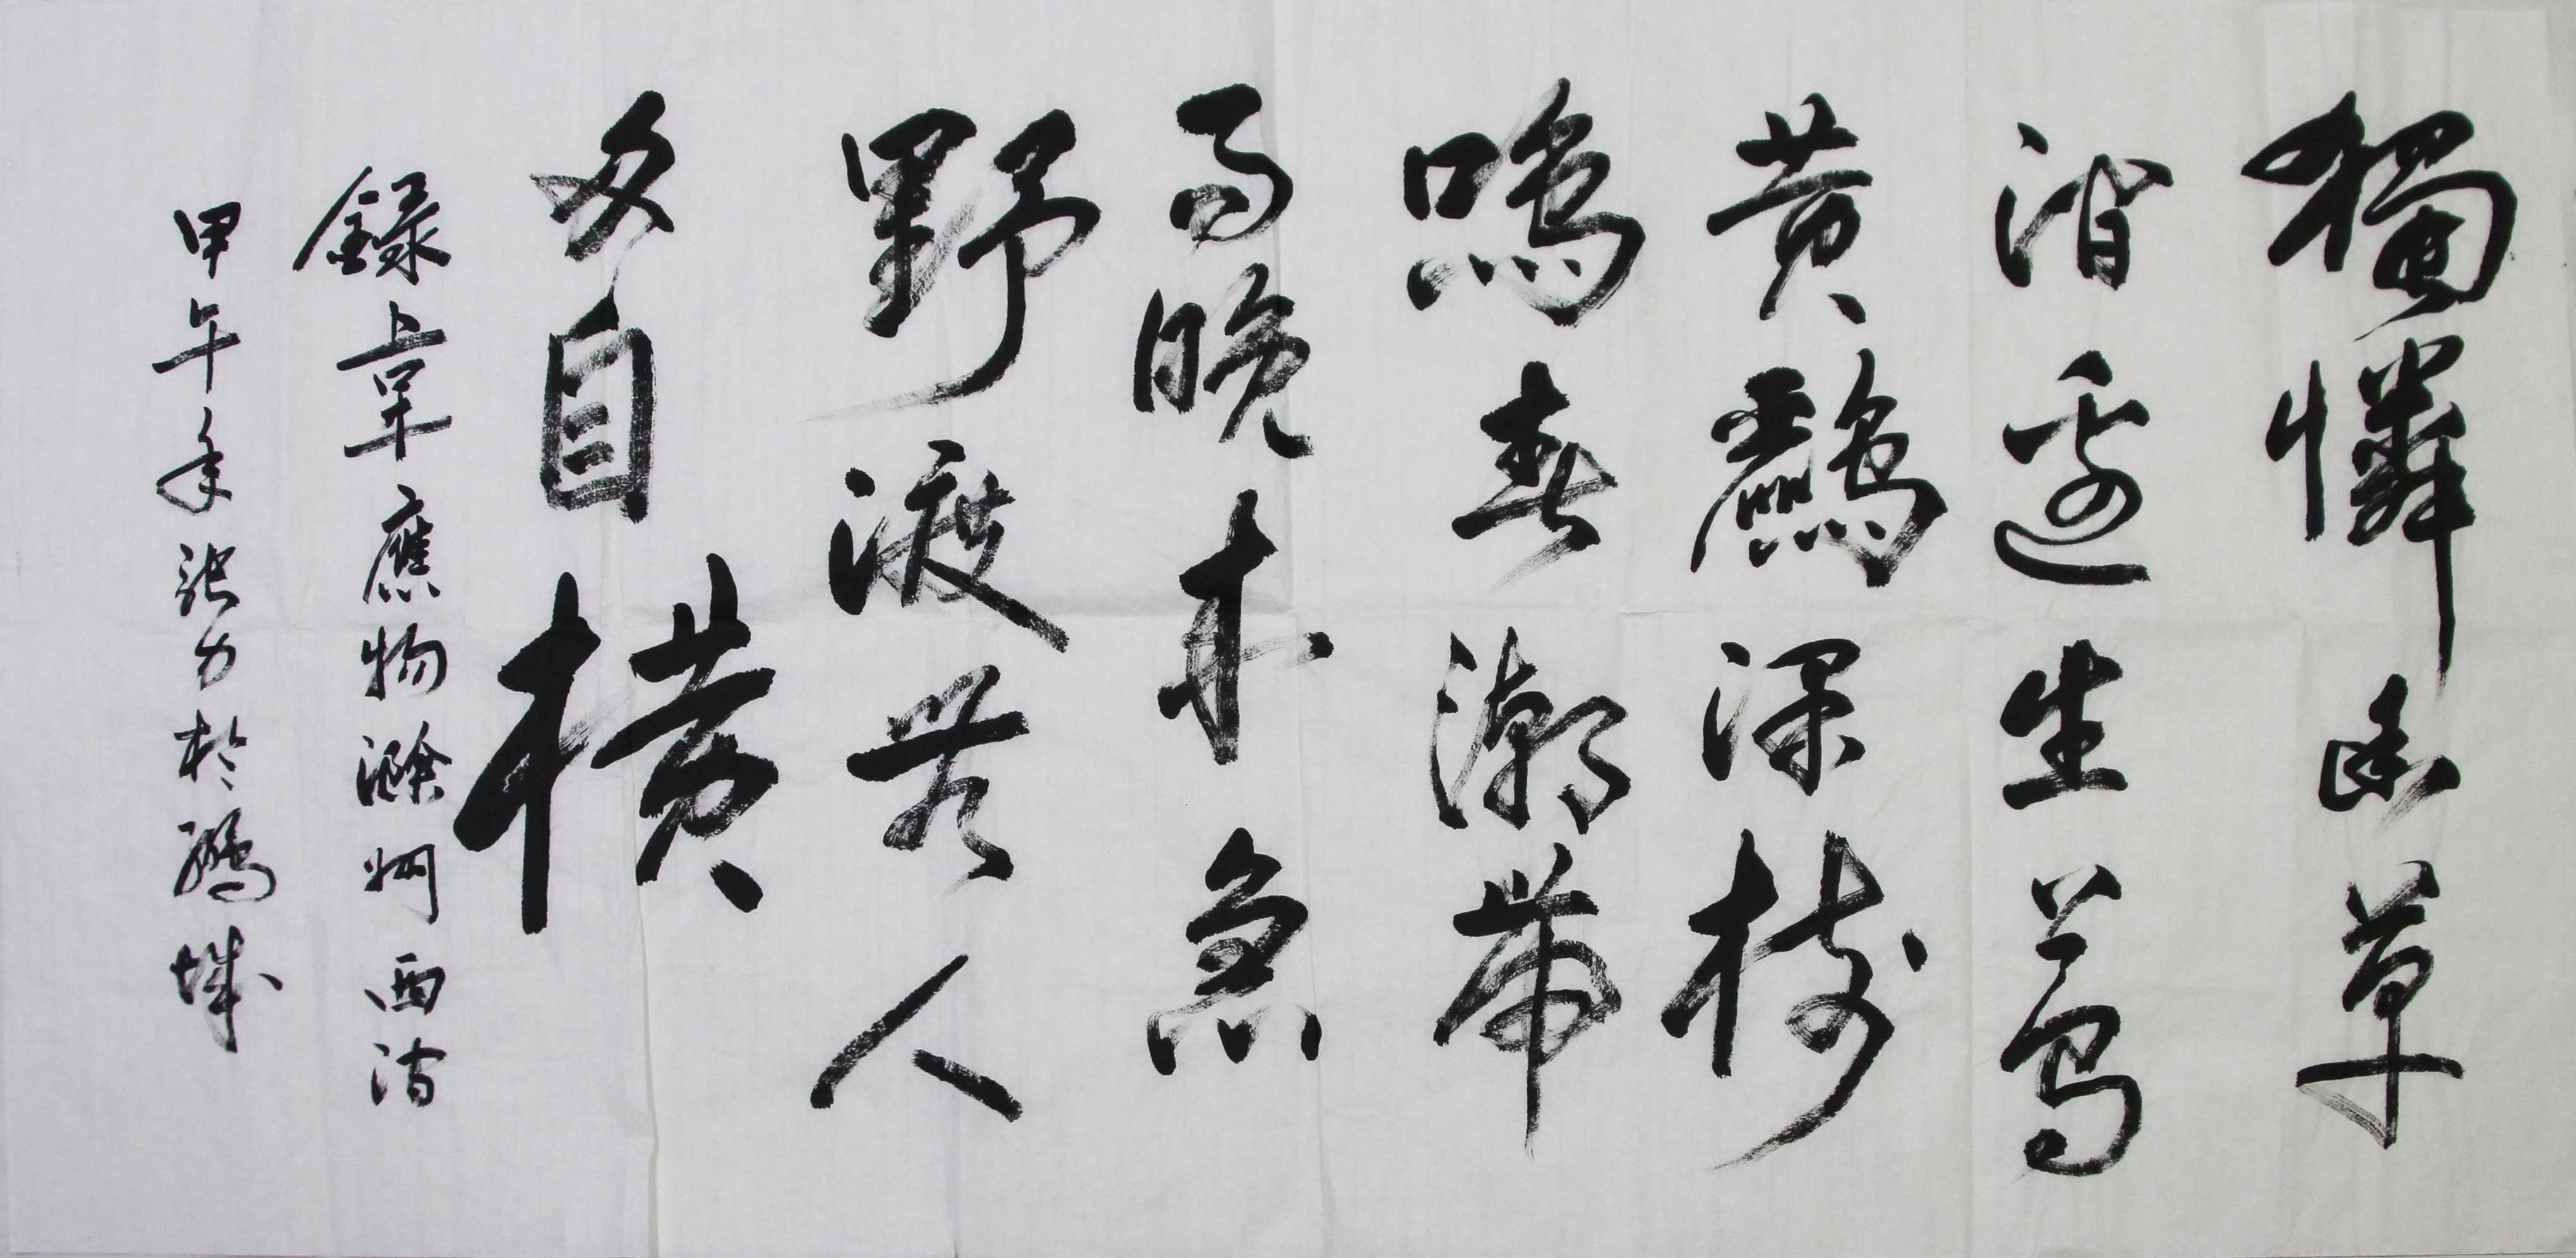 獨憐幽草
澗邊生上有
黃鸝深樹
鳴春潮帶
雨晚來急
野渡無人
舟自橫
錄韋應物滁州西澗
甲午年張力於鵬城